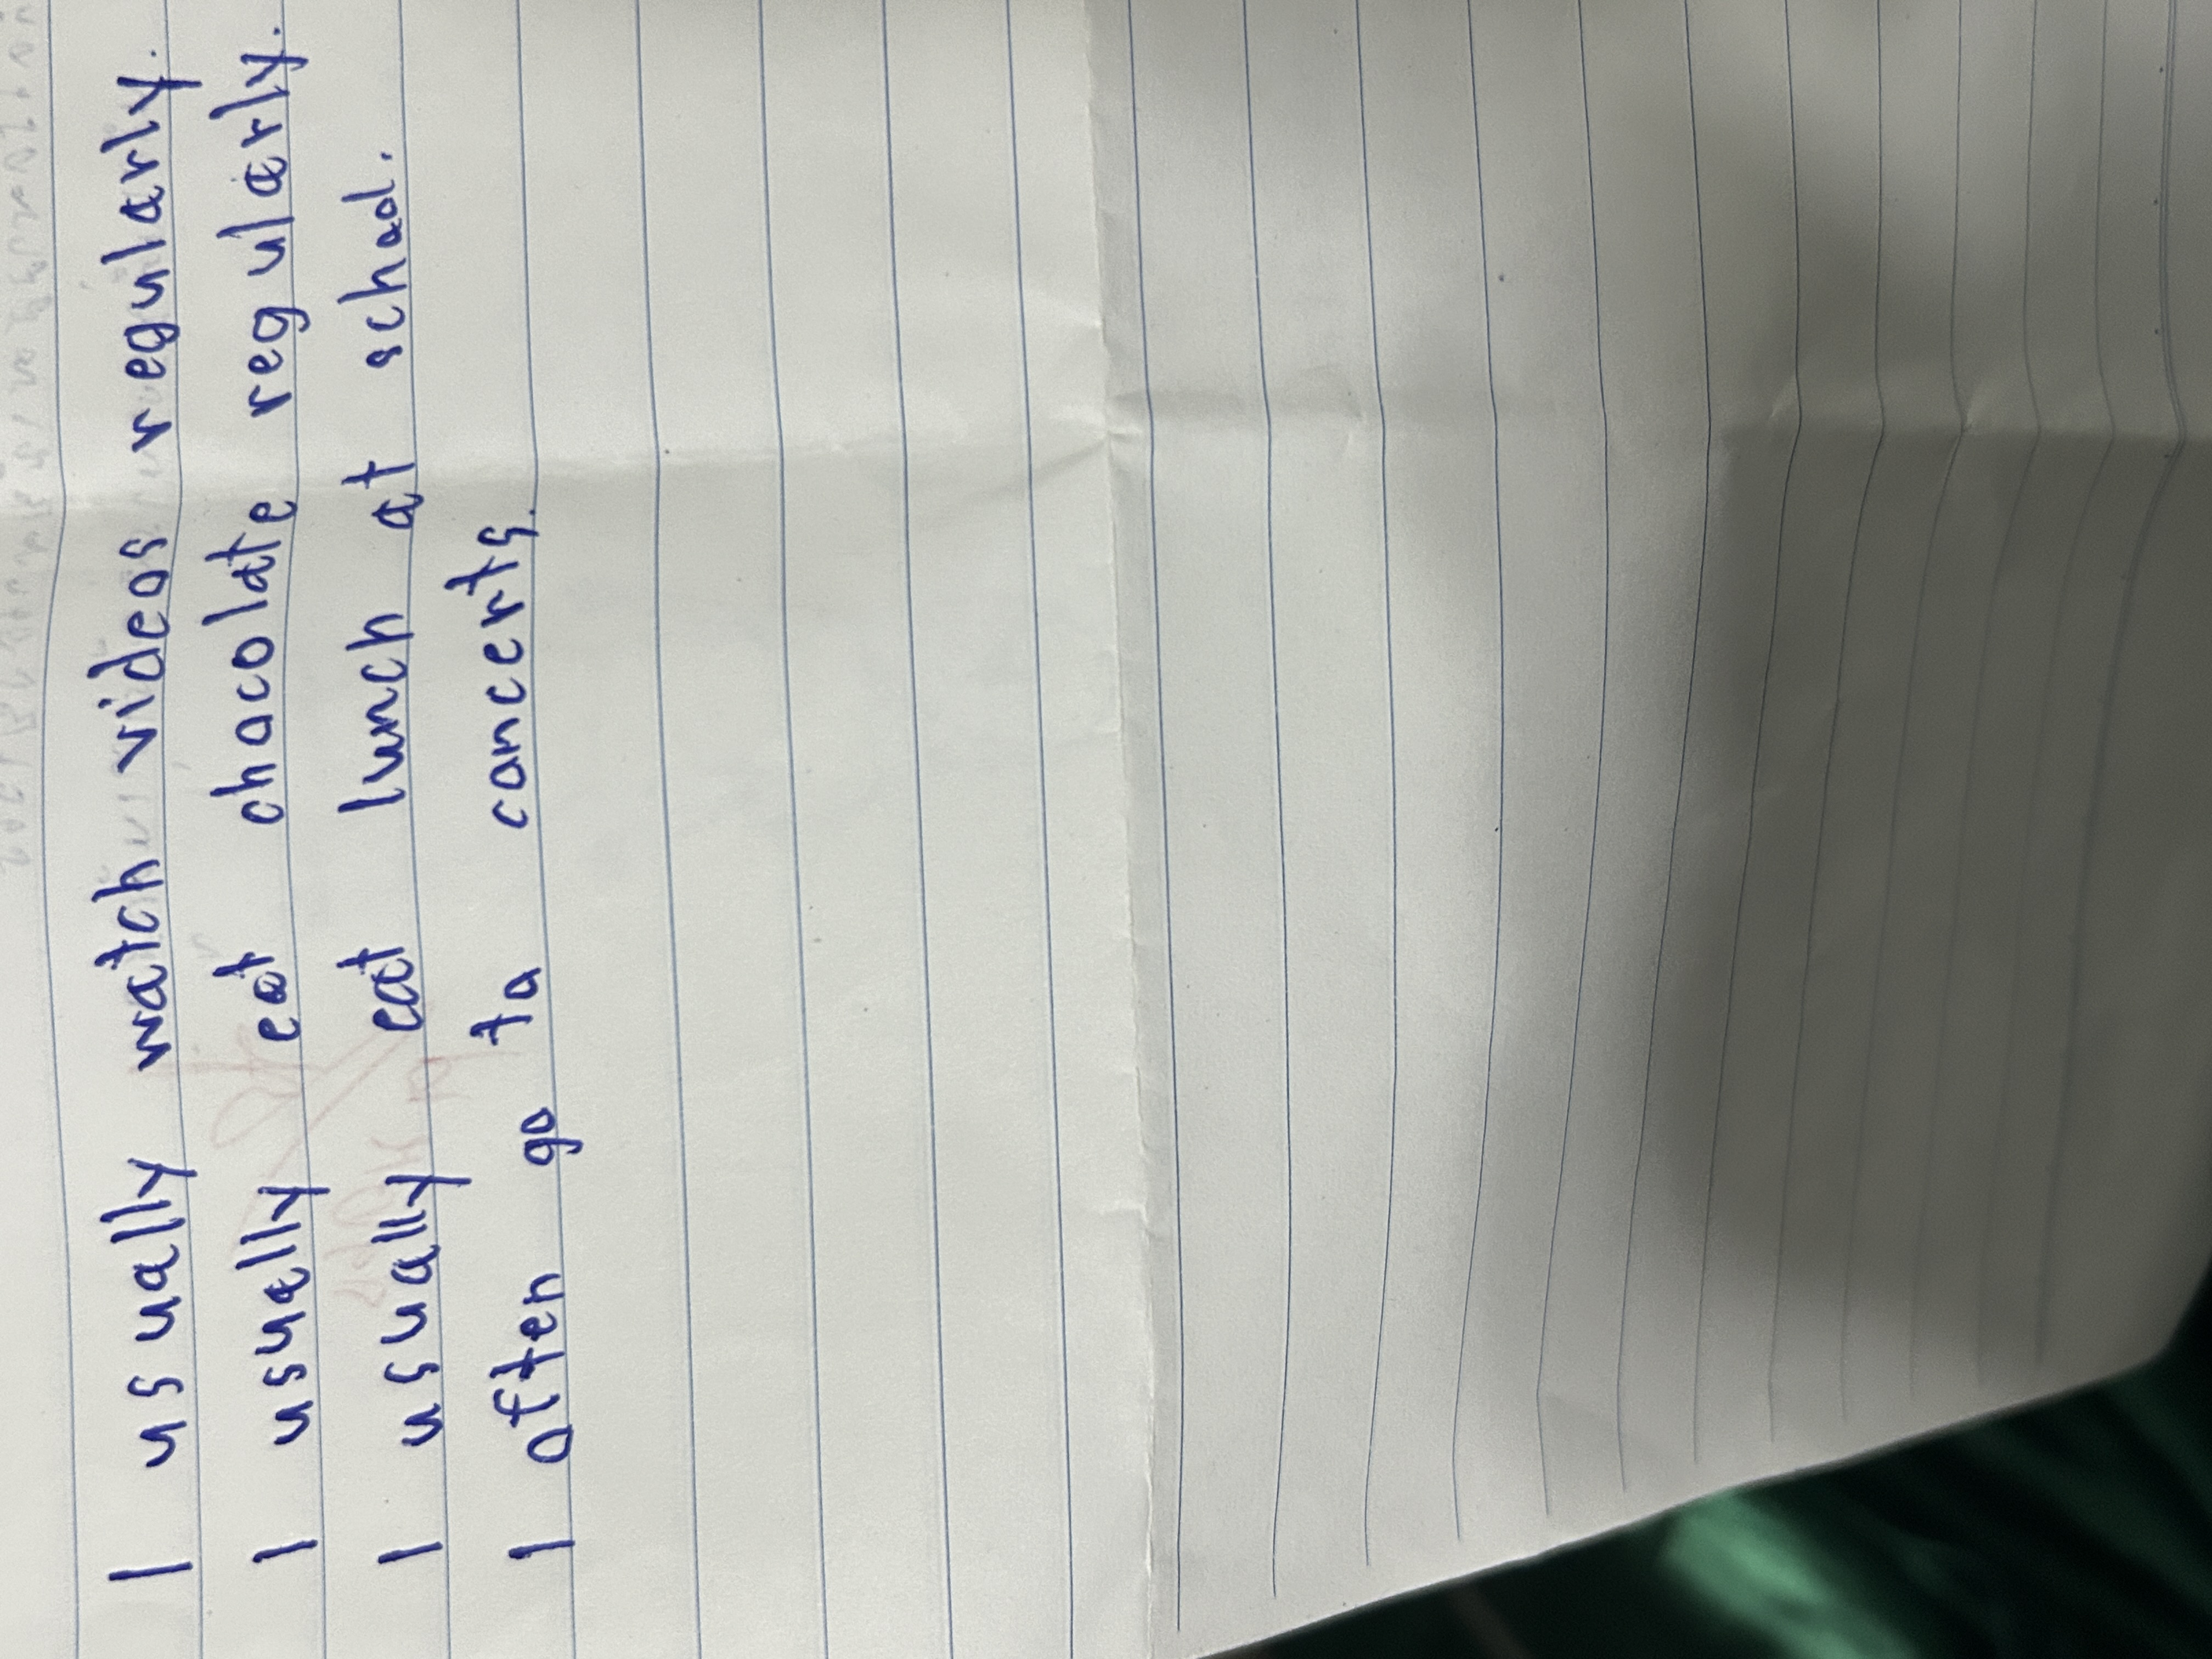 I usually watch videos regularly.
I usually eat chocolate regularly.
I usually eat lunch at school.
I often go to concerts.